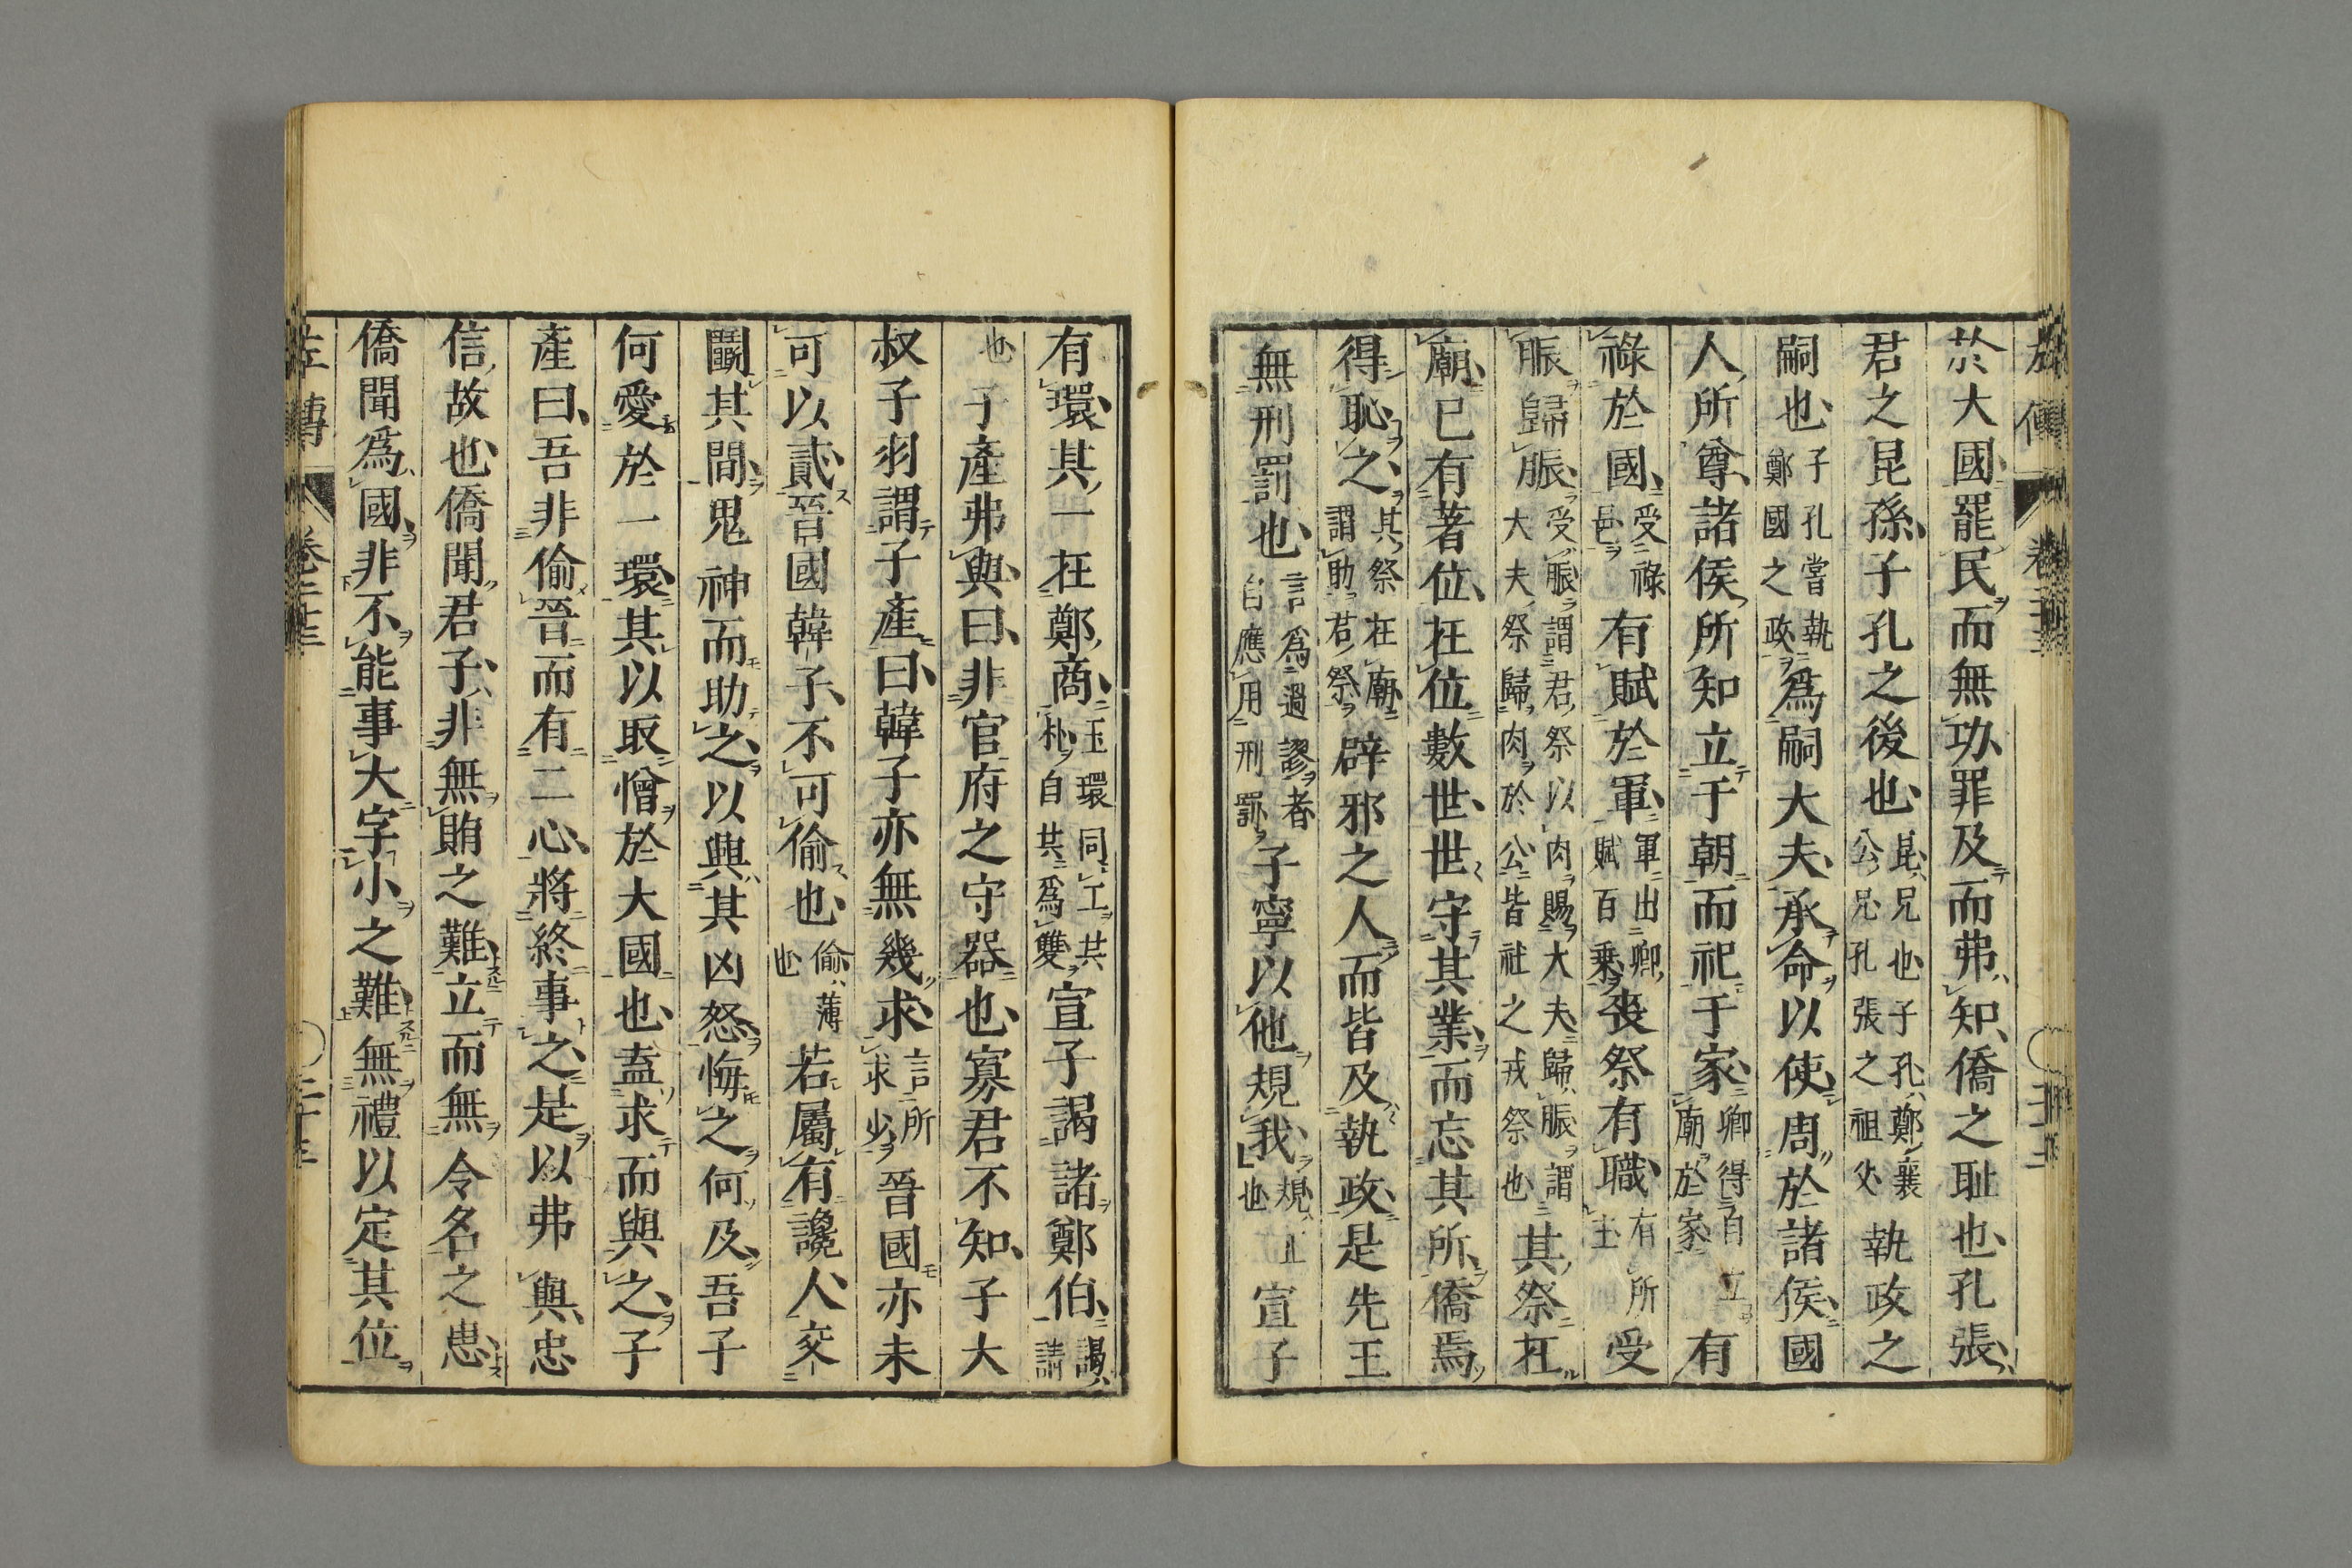 於大國罷民而無功罪及而弗知僑之耻也孔張
君之昆孫子孔之後也昆兄也子孔鄭襄公兄孔張之祖父執政之
嗣也子孔嘗執鄭國之政爲嗣大夫承命以使周於諸侯國
人所尊諸侯所知立于朝而祀于家卿得自立廟於家有
祿於國受祿邑有賦於軍軍出卿賦百乘喪祭有職有所主受
脤歸脤受脤謂君祭以肉賜大夫歸脤謂大夫祭歸肉於公皆社之戎祭也其祭在
廟已有著位在位數世世守其業而忘其所僑焉
得恥之其祭在廟謂助君祭辟邪之人而皆及執政是先王
無刑罰也言爲過謬者自應用刑罰子寧以他規我規正也宣子
有環其一在鄭商玉環同工共朴自共爲雙宣子謁諸鄭伯謁請
也子產弗與曰非官府之守器也寡君不知子大
叔子羽謂子產曰韓子亦無幾求言所求少晉國亦未
可以貳晉國韓子不可偷也偷薄也若屬有讒人交
鬭其間鬼神而助之以興其凶怒悔之何及吾子
何愛於一環其以取憎於大國也盍求而與之子
產曰吾非偷晉而有二心將終事之是以弗與忠
信故也僑聞君子非無賄之難立而無令名之患
僑聞爲國非不能事大字小之難無禮以定其位
左傳 卷二十三 二十三